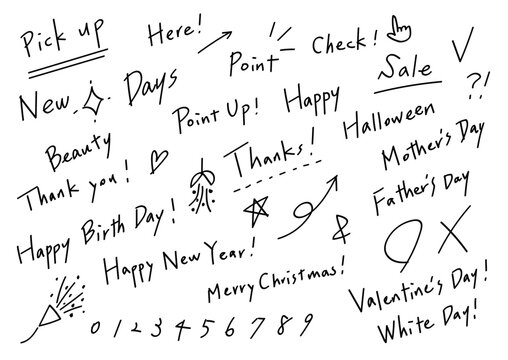 Pick up
Here!
Point
Check!
Sale
New
Days
Point Up!
Happy
?!
Halloween
Beauty
Thanks!
Mother's Day
Thank you!
Father's Day
Happy Birth Day!
Happy New Year!
&
Merry Christmas!
Valentine's Day!
White Day!
0 1 2 3 4 5 6 7 8 9